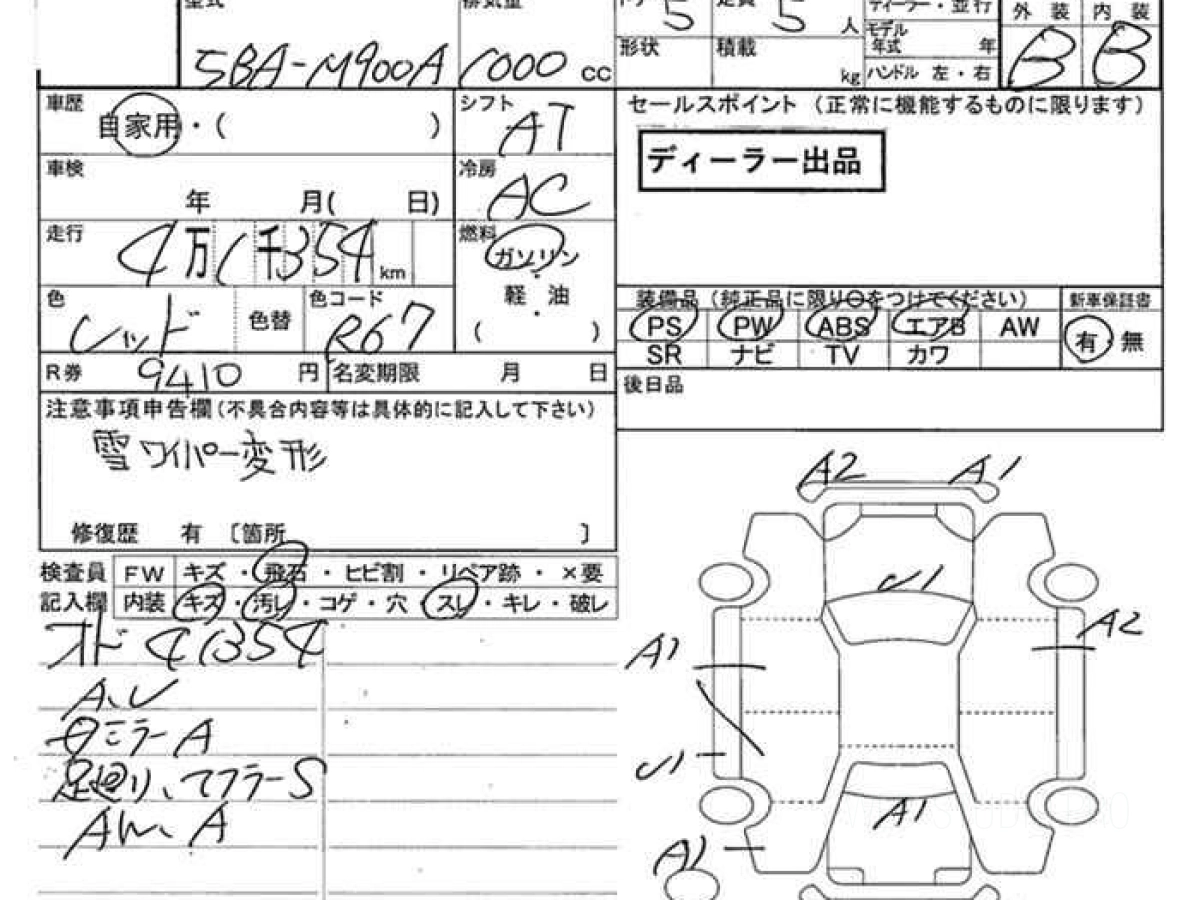 型式 排気量 ドア 5 定員 5 人 ディーラー・並行 外装 内装
5BA-M900A 1000 cc 形状 積載 kg モデル年式 年 B B
ハンドル 左・右
車歴 自家用・( )
シフト AT
セールスポイント (正常に機能するものに限ります)
ディーラー出品
車検 年 月( 日)
冷房 AC
走行 4万1千354km
燃料 ガソリン・軽油・( )
色 レッド 色替 色コード R67
装備品(純正品に限り○をつけてください) 新車保証書
PS PW ABS エアB AW 有・無
SR ナビ TV カワ
R券 9410円 名変期限 月 日
後日品
注意事項申告欄(不具合内容等は具体的に記入して下さい)
雪ワイパー変形
修復歴 有 〔箇所 〕
検査員 FW キズ・飛石・ヒビ割・リペア跡・×要
記入欄 内装 キズ・汚レ・コゲ・穴・スレ・キレ・破レ
オド 41354
A、U
ミラーA
足廻り、マフラーS
AW、A
A2 A1
U1
A1 A2
U1
A1
A1